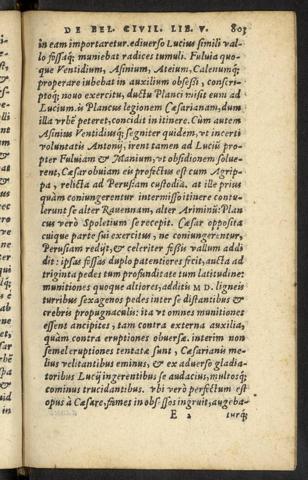 DE BEL. CIVIL. LIB. V. 803
in eam importaretur. ediverso Lucius simili val-
lo fossaq́; muniebat radices tumuli. Fulvia quo-
que Ventidium, Asinium, Ateium, Calenumq́;
properare iubebat in auxilium obsessi, conscri-
ptoq́; novo exercitu, ductu Planci misit eum ad
Lucium. is Plancus legionem Cæsarianam, dum
illa vrbē peteret, concidit in itinere. Cùm autem
Asinius Ventidiusq́; segniter quidem, vt incerti
voluntatis Antonij, irent tamen ad Luciū pro-
pter Fulviam & Manium, vt obsidionem solue-
rent, Cæsar obuiam eis profectus est cum Agrip-
pa, relicta ad Perusiam custodia. at ille prius
quàm coniungerentur intermisso itinere contu-
lerunt se alter Rauennam, alter Ariminū: Plan
cus verò Spoletium se recepit. Cæsar opposita
cuique parte sui exercitus, ne coniungerintur,
Perusiam redijt, & celeriter fossis vallum addi
dit: ipsas fossas duplo patentiores fecit, aucta ad
triginta pedes tum profunditate tum latitudine:
munitiones quoque altiores, additis M D. ligneis
turribus sexagenos pedes inter se distantibus &
crebris propugnaculis: ita vt omnes munitiones
essent ancipites, tam contra externa auxilia,
quàm contra eruptiones obuersæ. interim non
semel eruptiones tentatæ sunt, Cæsarianis me-
lius velitantibus eminus, & ex aduerso gladia-
toribus Lucij ingerentibus se audacius, multosq́;
cominus trucidantibus. vbi verò perfectum est
opus à Cæsare, fames in obsessos ingruit, augeba-
E 2 turq́;